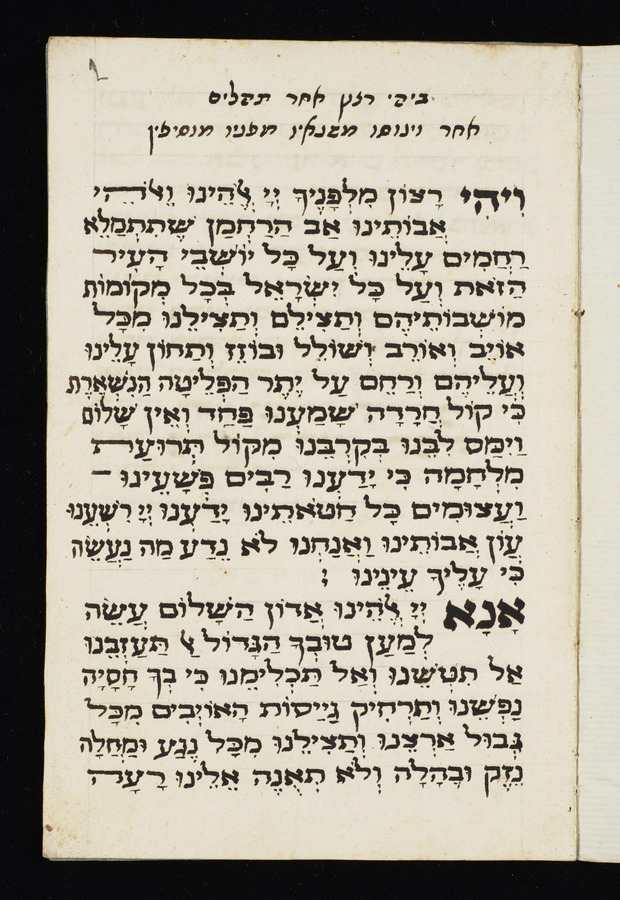 בימי רצון אחר תהלים
אחר וינוסו משנאיו מפניו מוסיפין
וִיהִי רָצוֹן מִלְּפָנֶיךָ יְיָ אֱלֹהֵינוּ וֵאלֹהֵי
אֲבוֹתֵינוּ אַב הָרַחֲמָן שֶׁתִּתְמַלֵּא
רַחֲמִים עָלֵינוּ וְעַל כָּל יוֹשְׁבֵי הָעִיר
הַזֹּאת וְעַל כָּל יִשְׂרָאֵל בְּכָל מְקוֹמוֹת
מוֹשְׁבוֹתֵיהֶם וְתַצִּילֵם וְתַצִּילֵנוּ מִכָּל
אוֹיֵב וְאוֹרֵב וְשׁוֹלֵל וּבוֹזֵז וְתָחוֹן עָלֵינוּ
וַעֲלֵיהֶם וְרַחֵם עַל יֶתֶר הַפְּלֵיטָה הַנִּשְׁאֶרֶת
כִּי קוֹל חֲרָדָה שָׁמַעְנוּ פַּחַד וְאֵין שָׁלוֹם
וַיִּמַּס לִבֵּנוּ בְּקִרְבֵּנוּ מִקּוֹל תְּרוּעַת
מִלְחָמָה כִּי יָדַעְנוּ רַבִּים פְּשָׁעֵינוּ
וַעֲצוּמִים כָּל חַטֹּאתֵינוּ יָדַעְנוּ יְיָ רִשְׁעֵנוּ
עֲוֹן אֲבוֹתֵינוּ וַאֲנַחְנוּ לֹא נֵדַע מַה נַּעֲשֶׂה
כִּי עָלֶיךָ עֵינֵינוּ :
אָנָא יְיָ אֱלֹהֵינוּ אֲדוֹן הַשָּׁלוֹם עֲשֵׂה
לְמַעַן טוּבְךָ הַגָּדוֹל אַל תַּעַזְבֵנוּ
אַל תִּטְּשֵׁנוּ וְאַל תַּכְלִימֵנוּ כִּי בְךָ חָסָיָה
נַפְשֵׁנוּ וְתַרְחִיק גְּיָיסוֹת הָאוֹיְבִים מִכָּל
גְּבוּל אַרְצֵנוּ וְתַצִּילֵנוּ מִכָּל נֶגַע וּמַחֲלָה
נֶזֶק וּבֶהָלָה וְלֹא תְאֻנֶּה אֵלֵינוּ רָעָה